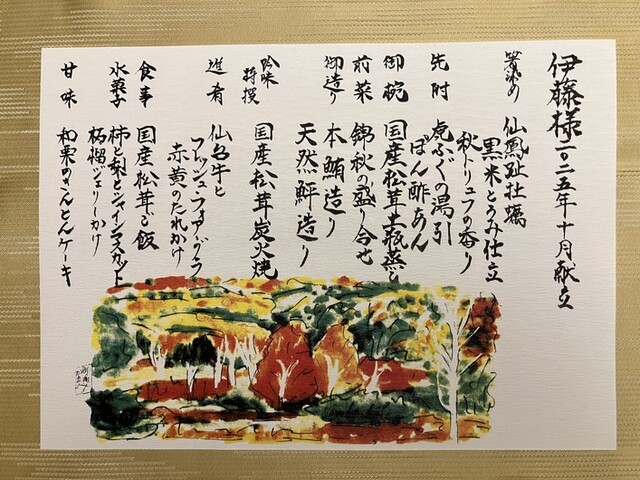 伊藤様 二〇二五年十月献立
箸染め 仙鳳趾牡蠣
黒米とろみ仕立
秋トリュフの香り
先附 虎ふぐの湯引
ぽん酢あん
御椀 国産松茸土瓶蒸し
前菜 錦秋の盛り合せ
御造り 本鮪造り
天然鮃造り
吟味特撰 国産松茸炭火焼
進肴 仙台牛と
フレッシュフォアグラ
赤黄のたれかけ
食事 国産松茸ご飯
水菓子 柿と梨とシャインマスカット
柘榴ジェリーかけ
甘味 和栗のきんとんケーキ